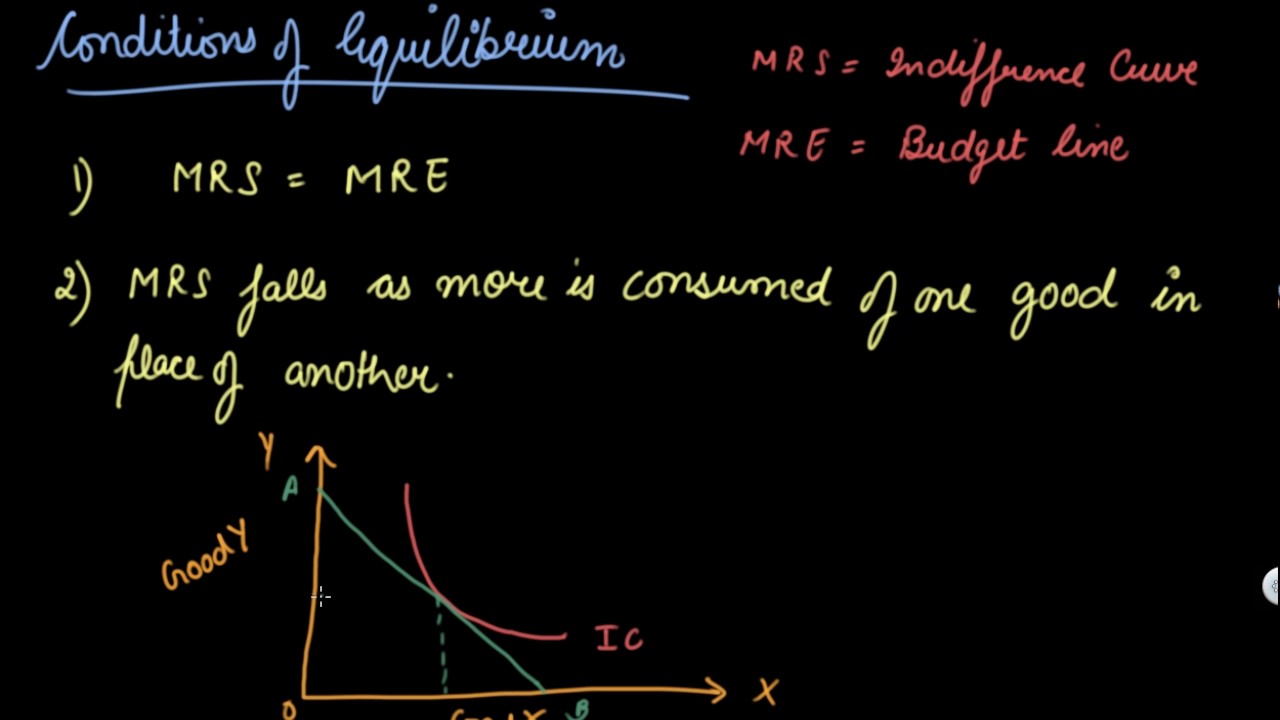 Conditions of Equilibrium
MRS = Indifference Curve
MRE = Budget line
1) MRS = MRE
2) MRS falls as more is consumed of one good in
place of another.
Y
A
Good Y
IC
X
O
B